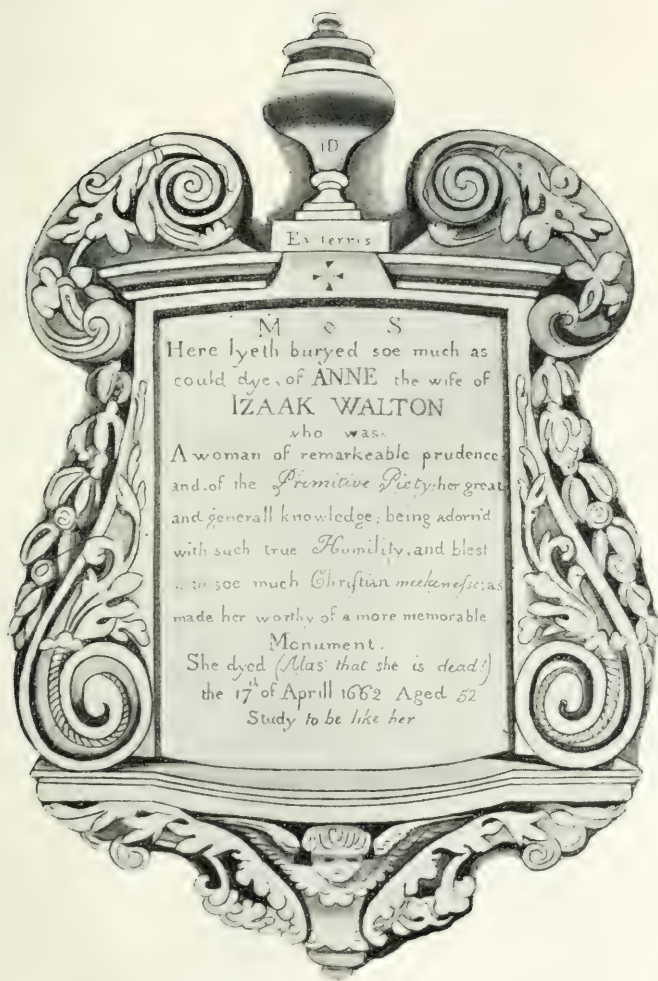 1D
Ex terris
M S
Here lyeth buryed soe much as
could dye, of ANNE the wife of
IZAAK WALTON
who was.
A woman of remarkeable prudence
and of the Primitive Piety; her great
and generall knowledge; being adornd
with such true Humility, and blest
soe much Christian meekenesse; as
made her worthy of a more memorable
Monument.
She dyed (Alas that she is dead!)
the 17th of Aprill 1662 Aged 52
Study to be like her